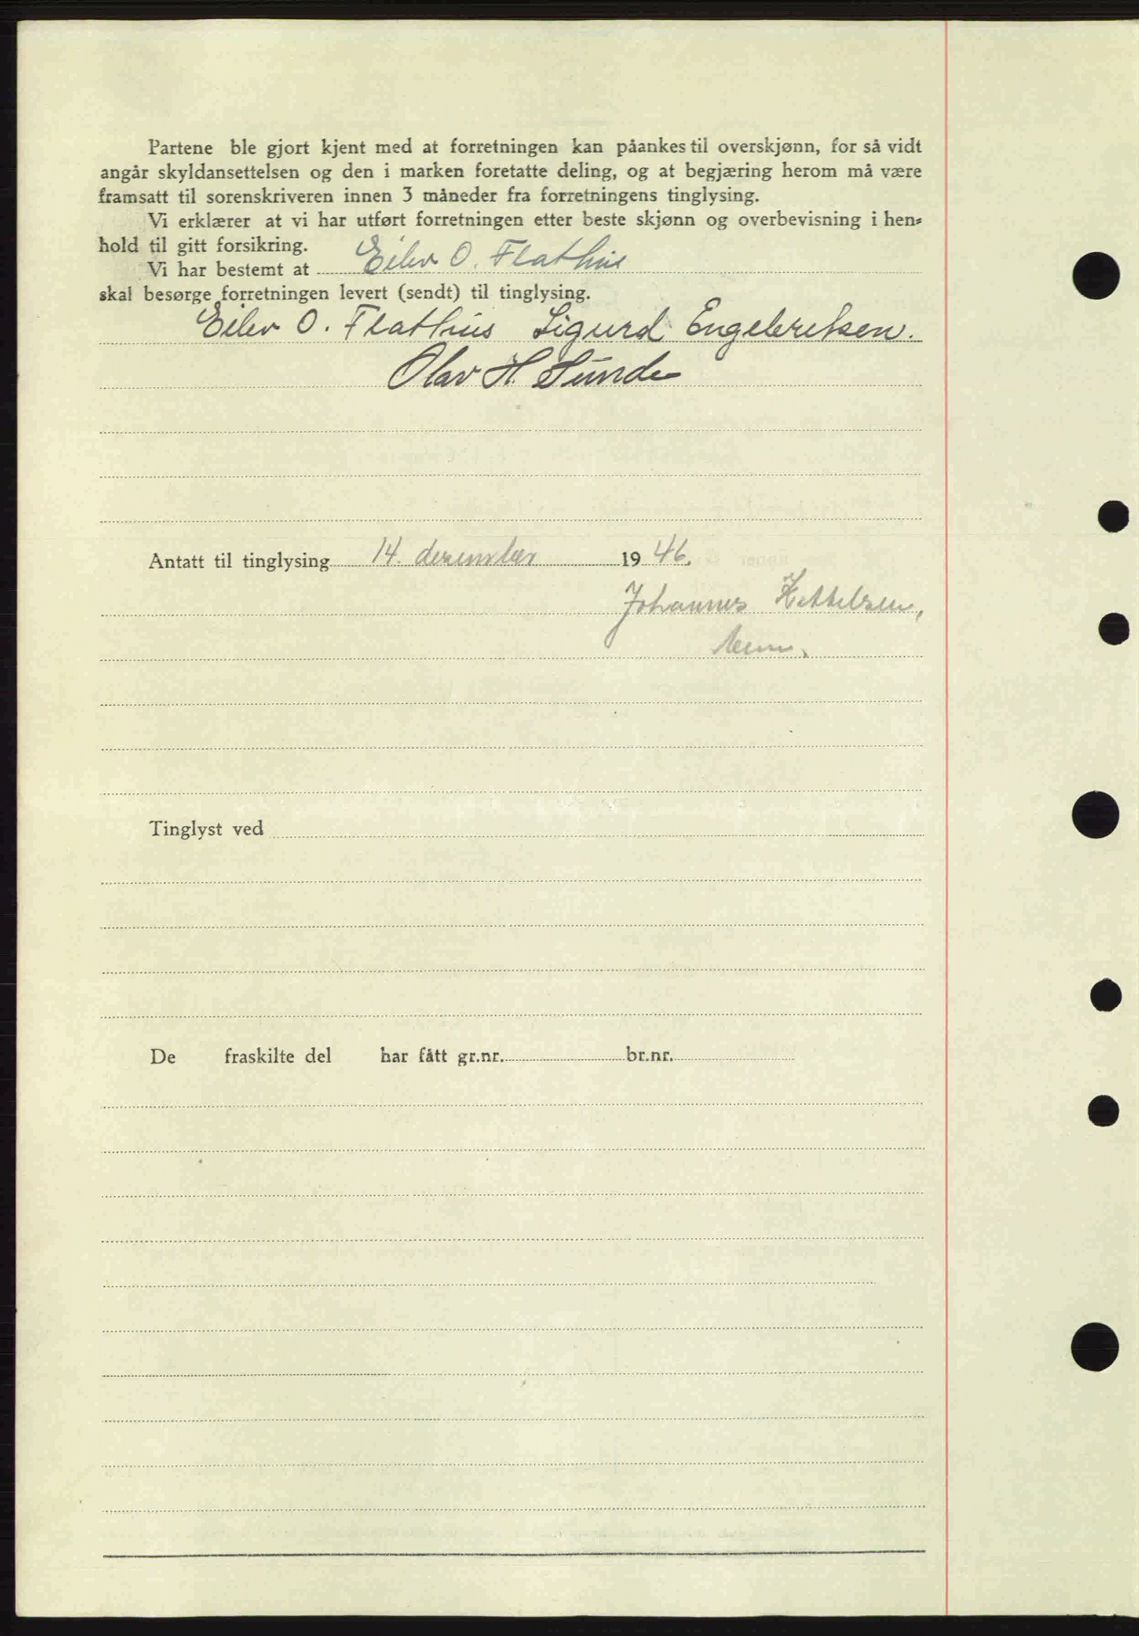 Partene ble gjort kjent med at forretningen kan påankes til overskjønn, for så vidt
angår skyldansettelsen og den i marken foretatte deling, og at begjæring herom må være
framsatt til sorenskriveren innen 3 måneder fra forretningens tinglysing.
Vi erklærer at vi har utført forretningen etter beste skjønn og overbevisning i hen-
hold til gitt forsikring.
Vi har bestemt at Eilev O. Flathus
skal besørge forretningen levert (sendt) til tinglysing.
Eilev O. Flathus Sigurd Engebretsen.
Olav H. Sunde
Antatt til tinglysing 14. desember 19 46.
Johannes Kettelsen,
Tinglyst ved
De fraskilte del har fått gr.nr. br.nr.